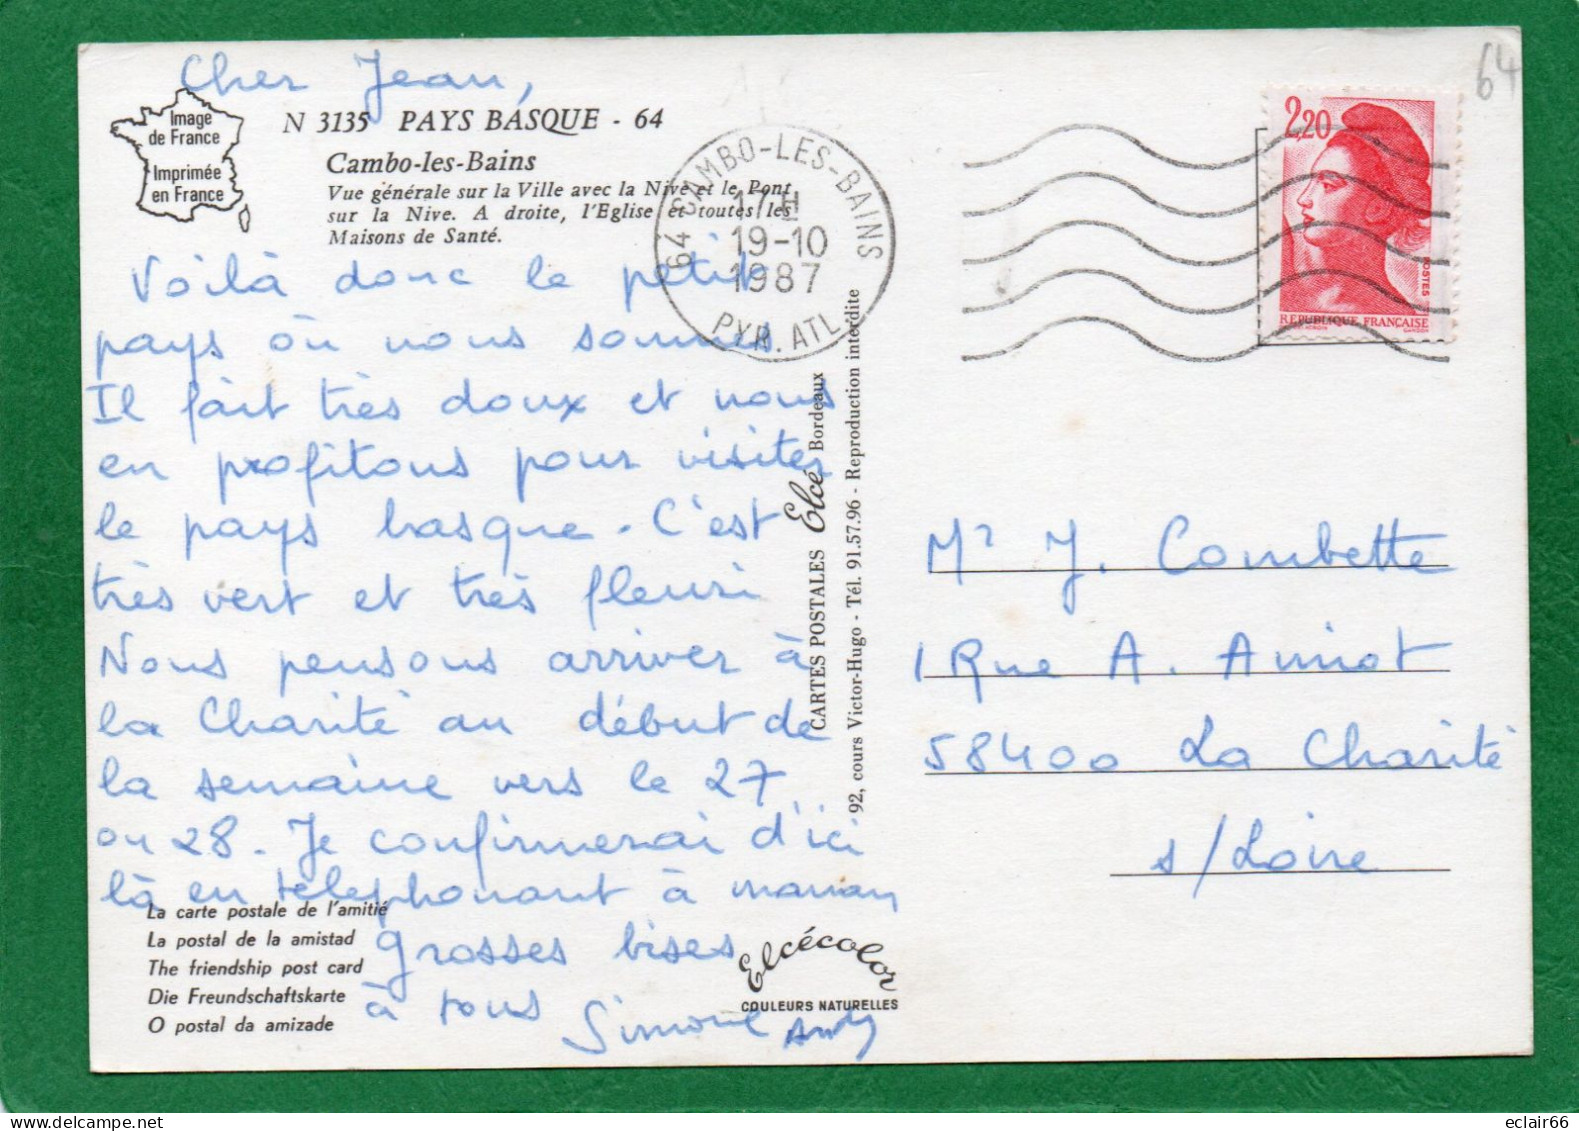 Cher Jean,
Image
de France
Imprimée
en France
N 3135 PAYS BASQUE - 64
Cambo-les-Bains
Vue générale sur la Ville avec la Nive et le Pont
sur la Nive. A droite, l'Eglise et toutes les
Maisons de Santé.
Voilà donc le petit
pays où nous sommes.
Il fait très doux et nous
en profitons pour visiter
le pays basque. C'est
très vert et très fleuri
Nous pensons arriver à
la Charité au début de
la semaine vers le 27
ou 28. Je confirmerai d'ici
là en téléphonant à maman
Grosses bises
à tous Simone Andy
La carte postale de l'amitié
La postal de la amistad
The friendship post card
Die Freundschaftskarte
O postal da amizade
Elcécolor
COULEURS NATURELLES
CARTES POSTALES Elcé Bordeaux
92, cours Victor-Hugo - Tél. 91.57.96 - Reproduction interdite
64 CAMBO-LES-BAINS
17H
19-10
1987
PYR. ATL.
64
2,20
POSTES
REPUBLIQUE FRANÇAISE
Mr J. Combette
1 Rue A. Amiot
58400 La Charité
s/Loire
eclair66